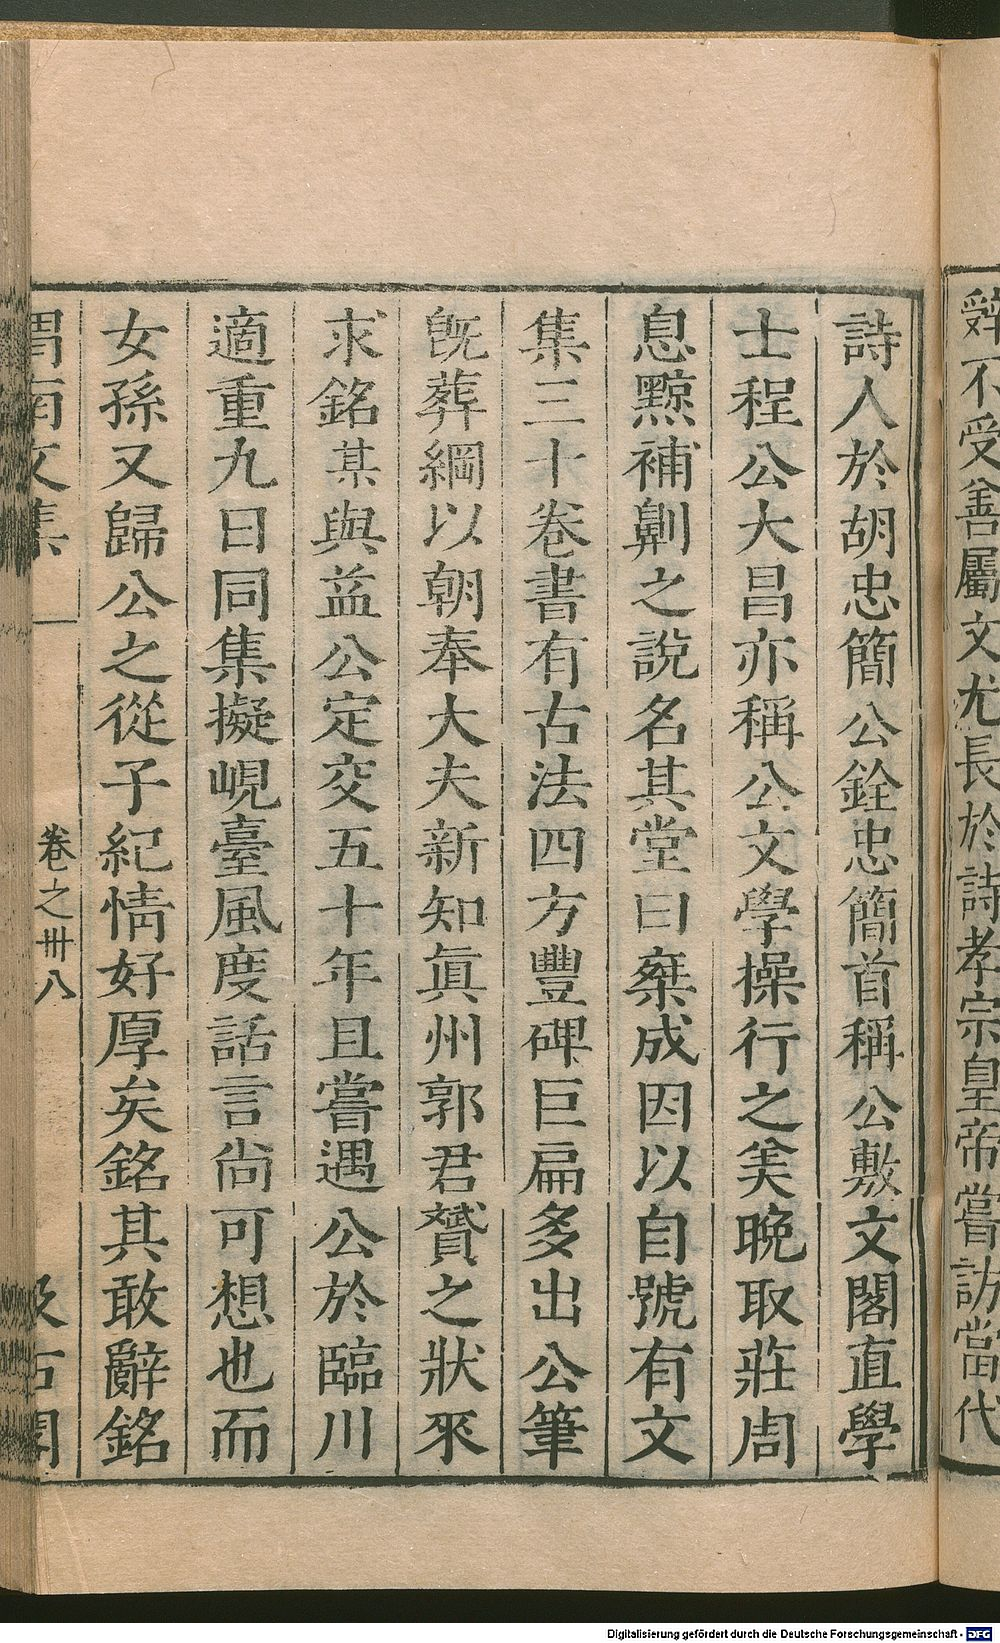 辤不受善屬文尤長於詩孝宗皇帝嘗訪當代
詩人於胡忠簡公銓忠簡首稱公敷文閣直學
士程公大昌亦稱公文學操行之美晚取莊周
息黥補劓之說名其堂曰棄成因以自號有文
集三十卷書有古法四方豐碑巨扁多出公筆
旣葬綱以朝奉大夫新知眞州郭君贇之狀來
求銘某與益公定交五十年且嘗遇公於臨川
適重九日同集擬峴臺風度話言尙可想也而
女孫又歸公之從子紀情好厚矣銘其敢辭銘
渭南文集 卷之卅八 汲古閣
Digitalisierung gefördert durch die Deutsche Forschungsgemeinschaft - DFG